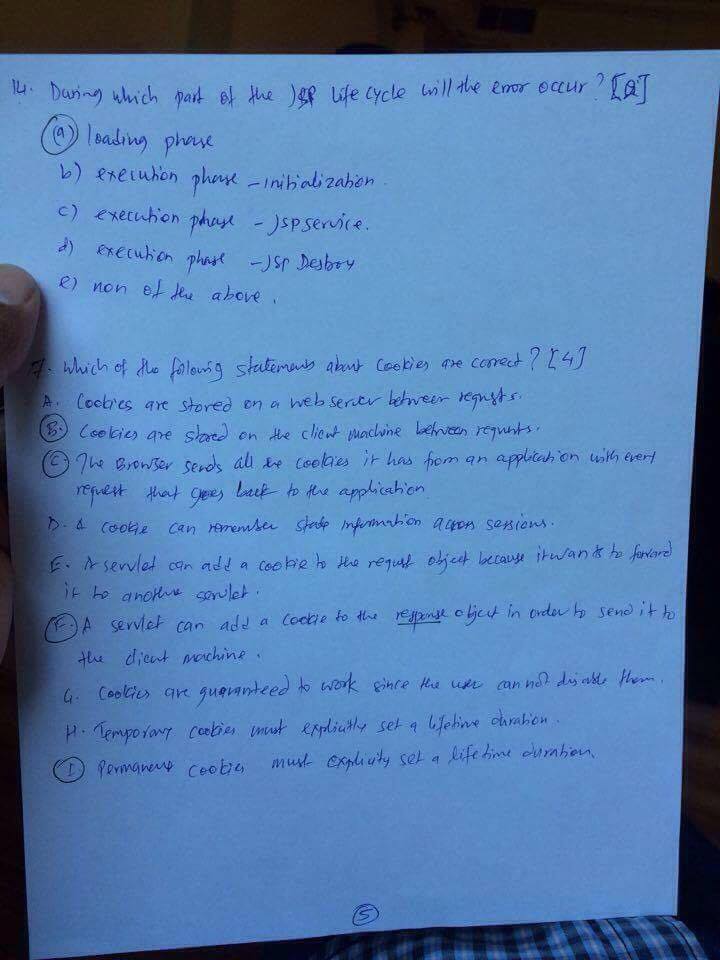 14. During which part of the JSP life cycle will the error occur? [a]
(a) loading phase
b) execution phase - initialization
c) execution phase - JSP service.
d) execution phase - JSP Destroy
e) non of the above.
7. Which of the following statements about Cookies are correct? [4]
A. Cookies are stored on a web server between requsts.
B. Cookies are stored on the client machine between requests.
C. The Browser sends all the cookies it has from an application with every
request that goes back to the application
D. A cookie can remember state information across sessions.
E. A servlet can add a cookie to the request object because it wants to forward
it to another servlet.
F. A servlet can add a cookie to the response object in order to send it to
the client machine.
G. Cookies are guaranteed to work since the user cannot disable them.
H. Temporary cookies must explicitly set a lifetime duration.
I Permanent cookies must explicity set a lifetime duration.
5